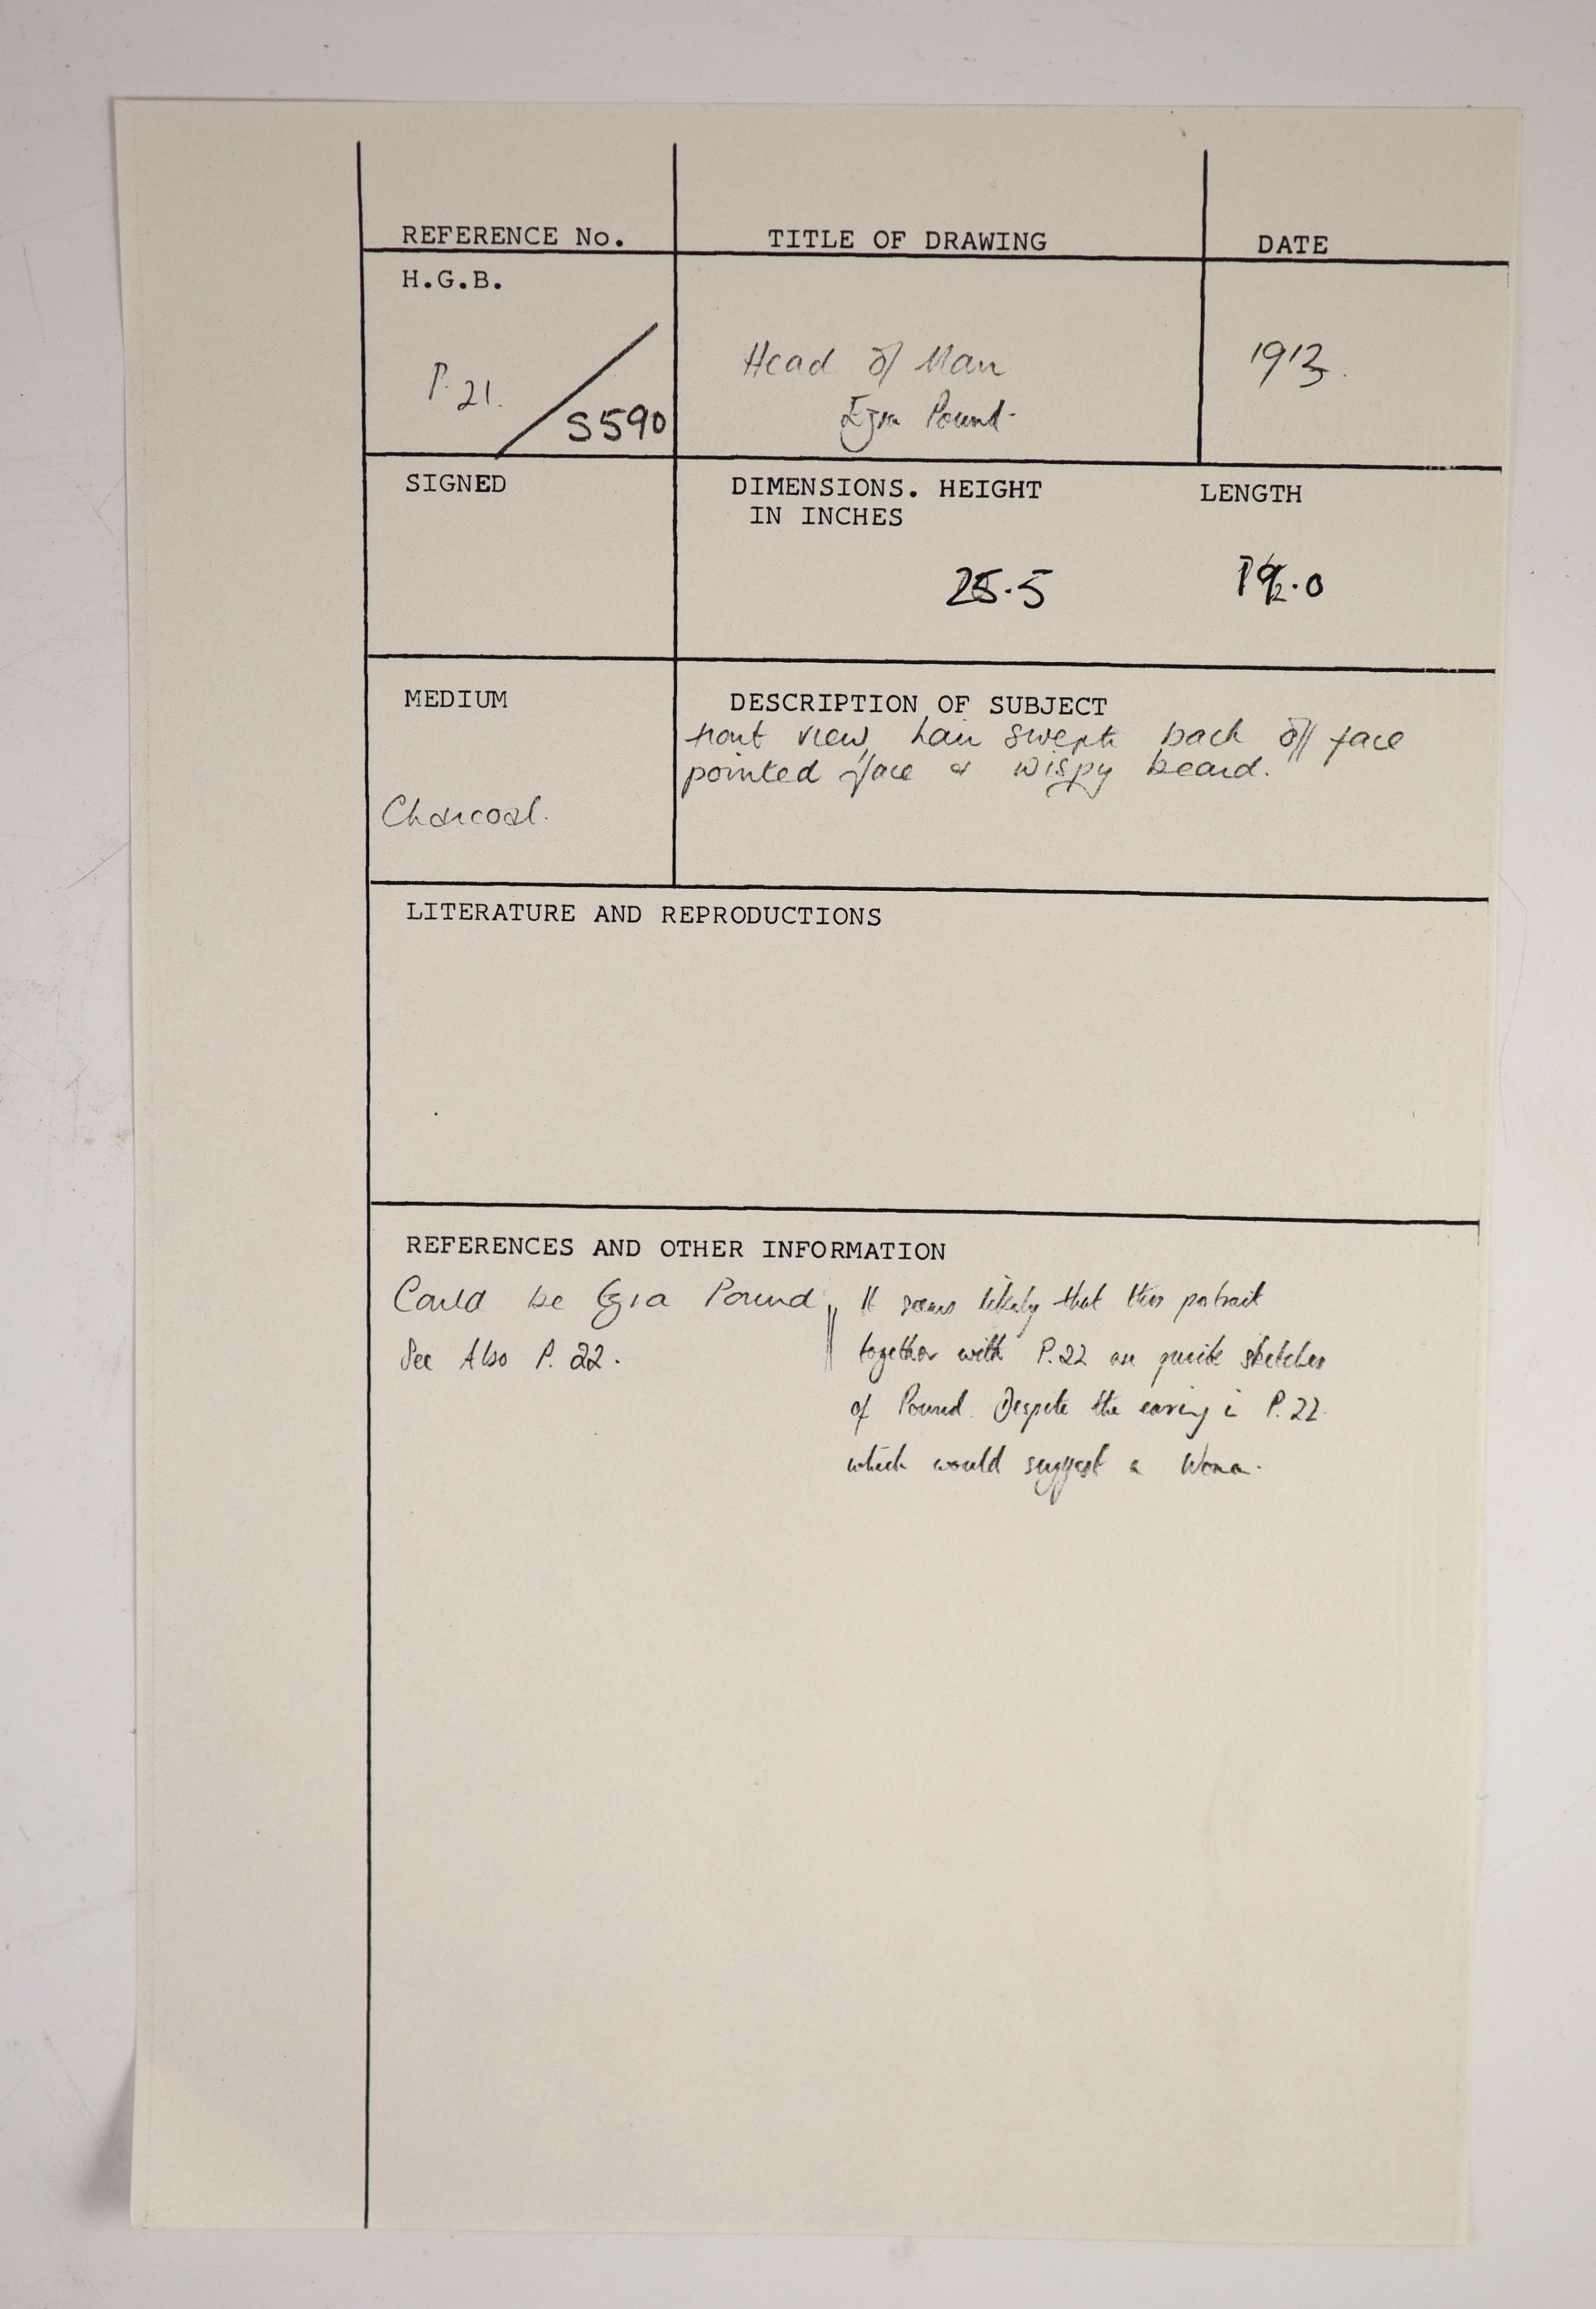 REFERENCE No.
TITLE OF DRAWING
DATE
H.G.B.
P. 21. / S590
Head of Man
Ezra Pound
1913.
SIGNED
DIMENSIONS. HEIGHT LENGTH
IN INCHES
25.5
MEDIUM
Charcoal.
DESCRIPTION OF SUBJECT
front view, hair swept back off face
pointed face & wispy beard.
LITERATURE AND REPRODUCTIONS
REFERENCES AND OTHER INFORMATION
Could be Ezra Pound,
See Also P. 22.
It seems likely that this potrait
together with P.22 are quick sketches
of Pound. Despite the earing in P.22
which would suggest a Woman.